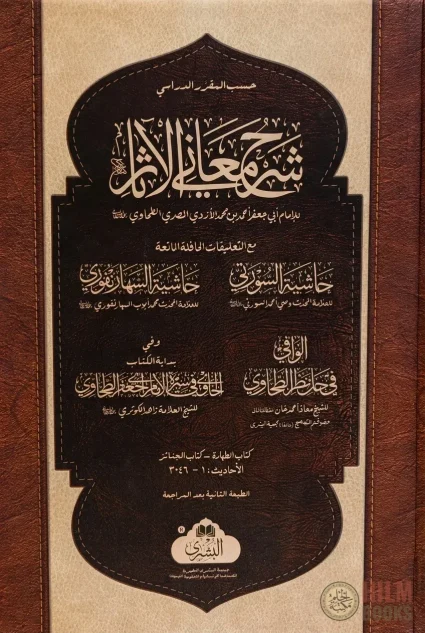 حسب المقرر الدراسي
شرح معاني الآثار
للإمام أبي جعفر أحمد بن محمد الأزدي المصري الطحاوي
مع التعليقات الحافلة الماتعة
حاشية السورتي
للعلامة المحدث وصي أحمد السورتي
حاشية السهارنفوري
للعلامة المحدث محمد أيوب السهارنفوري
الوافي
في حل نظر الطحاوي
للشيخ معاذ أحمد خان
وفي
بداية الكتاب
الحاوي في سيرة الإمام أبي جعفر الطحاوي
للشيخ العلامة زاهد الكوثري
كتاب الطهارة - كتاب الجنائز
الأحاديث: ١ - ٣٠٤٦
الطبعة الثانية بعد المراجعة
البشرى
HILM
BOOKS